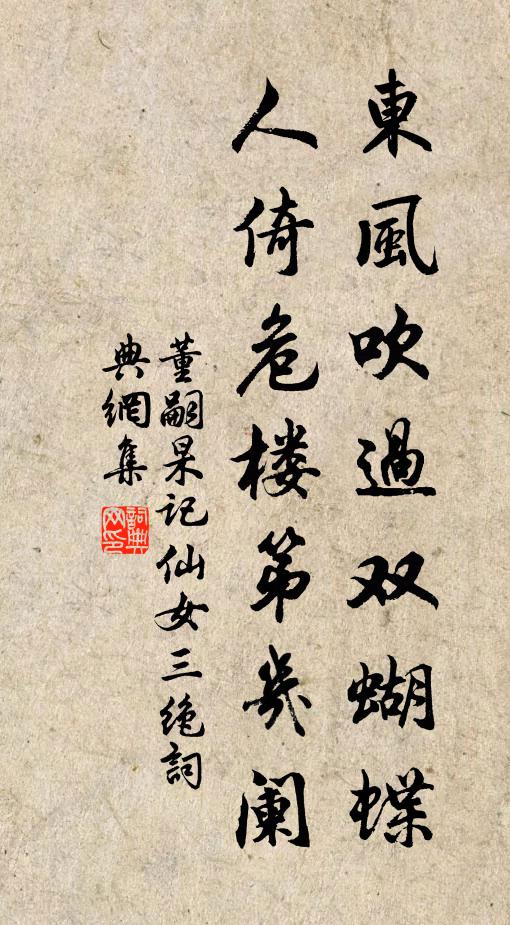 東風吹過双蝴蝶
人倚危楼第幾阑
董嗣杲记仙女三绝詞
典網集
詞典网印